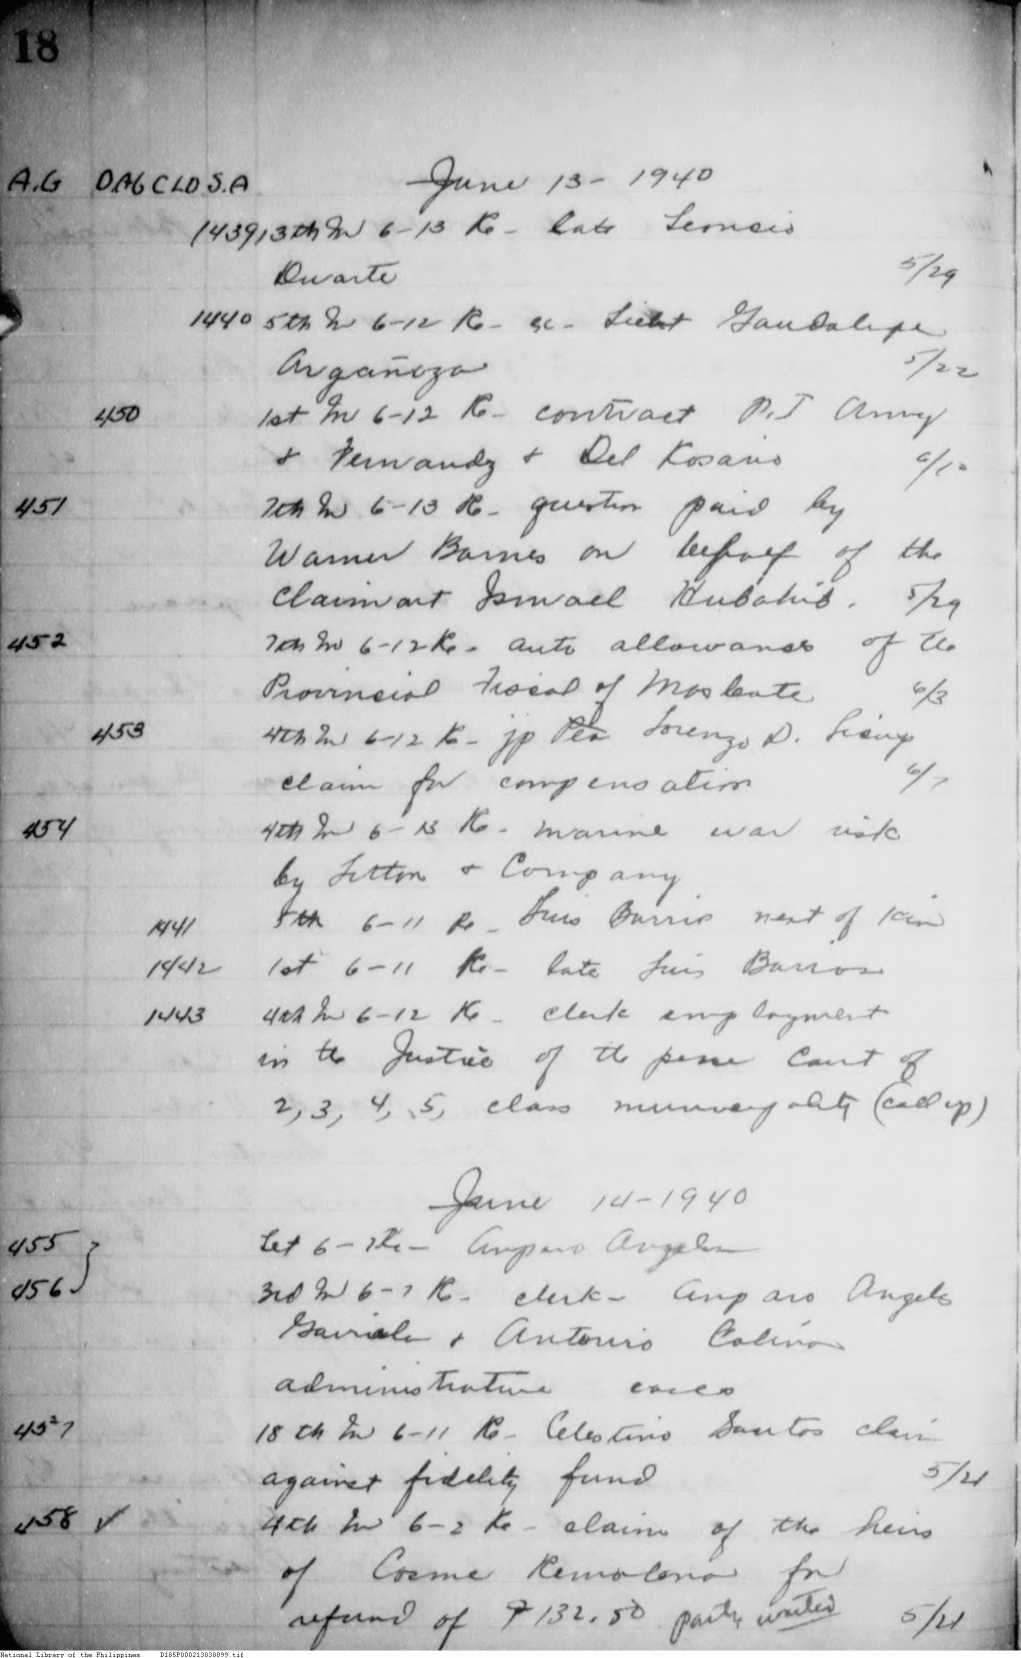 18
A.G DAG CLO S.A June 13 - 1940
1439 13th In 6-13 Re - late Leoncio
Duarte 5/29
1440 5th In 6-12 Re - sc - Gaudalupe
Argañoza 5/22
450 1st In 6-12 Re - contract P.I Army
& Fernandez & Del Rosario 6/10
451 7th In 6-13 Re - question paid by
Warner Barnes on behalf of the
claimant Ismael 5/29
452 7th In 6-12 Re - auto allowances of the
Provincial Fiscal of Masbate 6/3
453 4th In 6-12 Re - jp Lorenzo D.
claim for compensation 6/7
454 4th In 6-13 Re - marine war risk
by Litton & Company
1441 5th 6-11 Re - Luis Barrios next of kin
1442 1st 6-11 Re - late Luis Barrios
1443 4th In 6-12 Re - clerk employment
in the Justice of the peace Court of
2, 3, 4, 5, class municipality (Call up)
June 14 - 1940
455 1st 6-7 Re - Amparo Angeles
456 3rd In 6-7 Re - clerk - Amparo Angeles
& Antonio
administrative cases
457 18th In 6-11 Re - Celestino Santos claim
against fidelity fund 5/21
458 ✓ 4th In 6-2 Re - claim of the heirs
of Cosme for
refund of ₱132.50 5/21
National Library of the Philippines D185P000213838099.tif